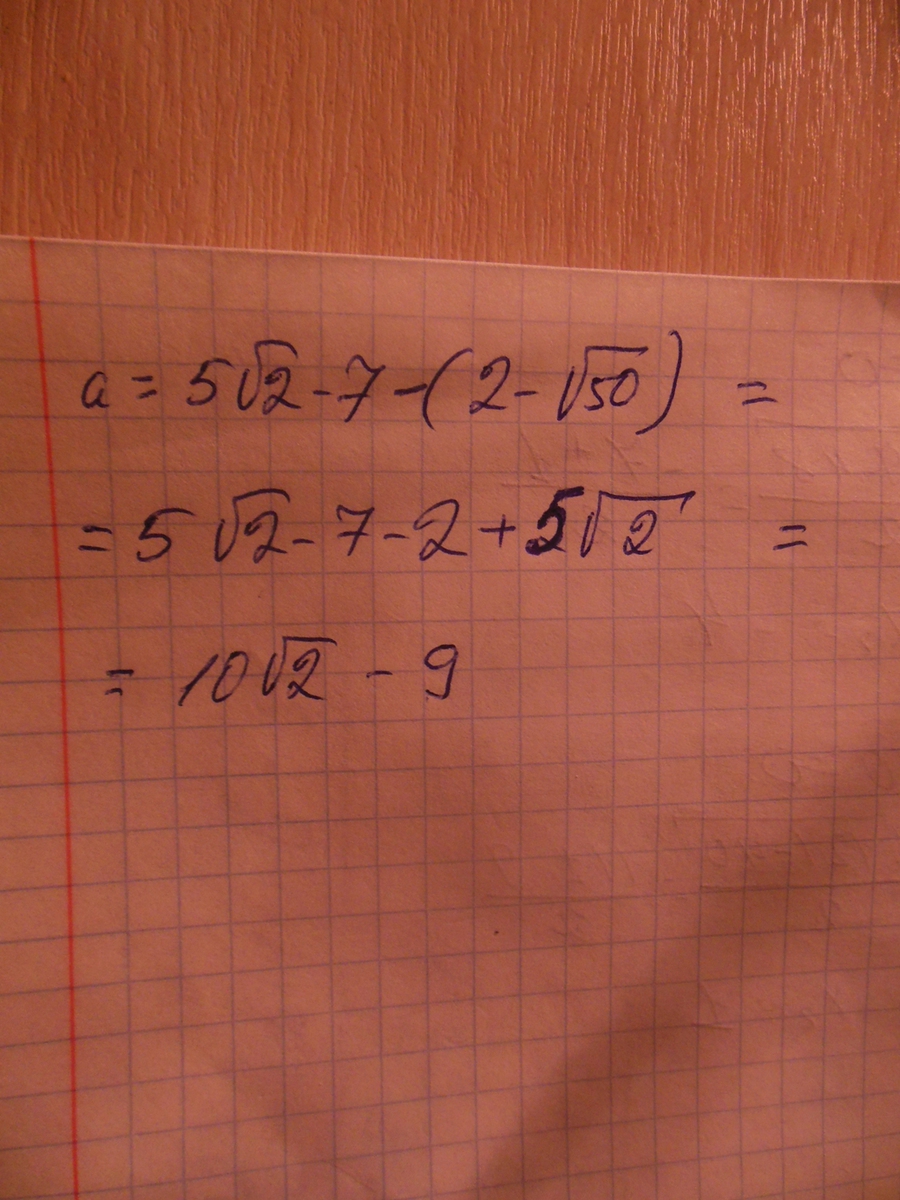 a = 5√2 - 7 - (2 - √50) =
= 5 √2 - 7 - 2 + 5√2 =
= 10√2 - 9